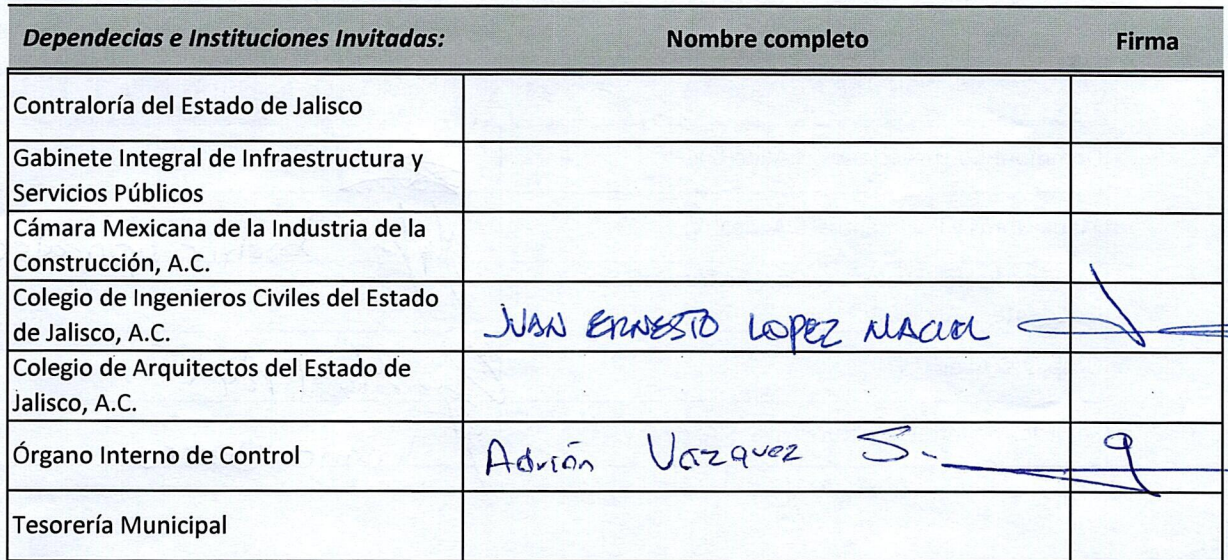 Dependecias e Instituciones Invitadas: Nombre completo Firma
Contraloría del Estado de Jalisco
Gabinete Integral de Infraestructura y
Servicios Públicos
Cámara Mexicana de la Industria de la
Construcción, A.C.
Colegio de Ingenieros Civiles del Estado
de Jalisco, A.C.
JUAN ERNESTO LOPEZ MACIEL
Colegio de Arquitectos del Estado de
Jalisco, A.C.
Órgano Interno de Control
Adrián Vazquez S.
Tesorería Municipal